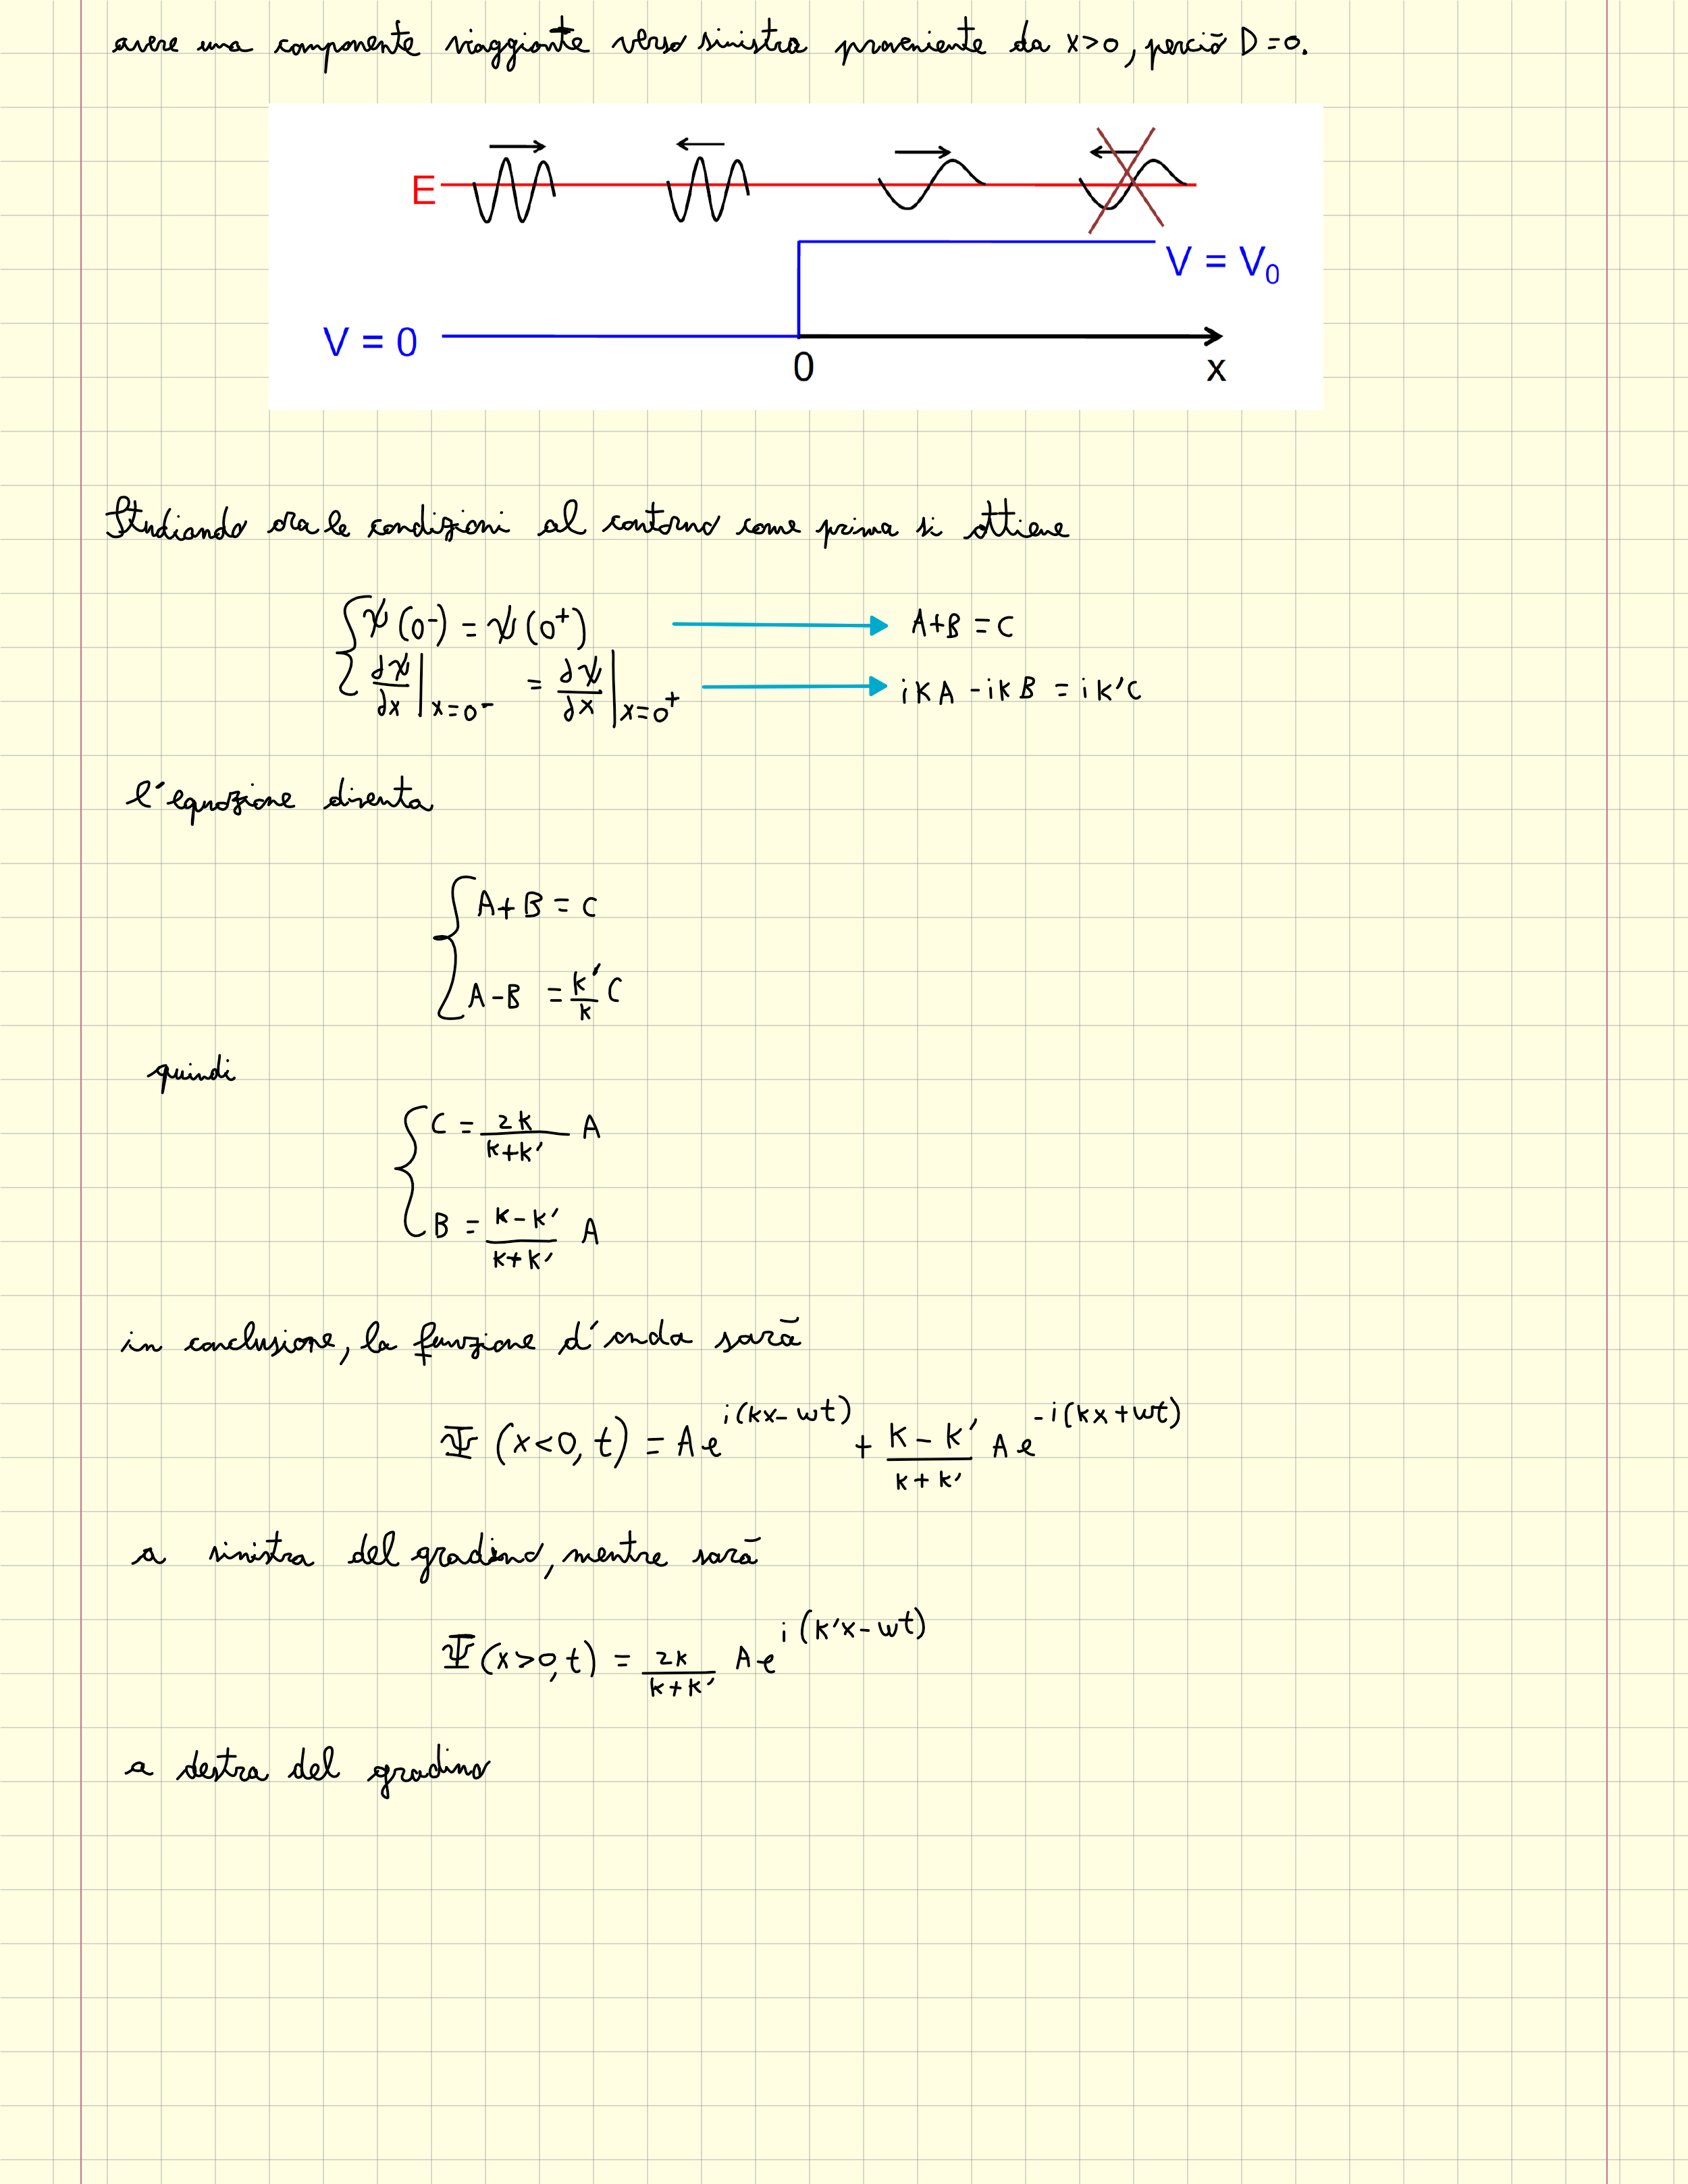 avere una componente viaggiante verso sinistra proveniente da x>0, perciò D=0.
E
V = V₀
V = 0
0
x
Studiando ora le condizioni al contorno come prima si ottiene
ψ(0⁻) = ψ(0⁺) → A+B = C
∂ψ/∂x|x=0⁻ = ∂ψ/∂x|x=0⁺ → ikA - ikB = ik'C
l'equazione diventa
A+B = C
A-B = k'/k C
quindi
C = 2k/(k+k') A
B = (k-k')/(k+k') A
in conclusione, la funzione d'onda sarà
Ψ(x<0, t) = A e^{i(kx-ωt)} + (k-k')/(k+k') A e^{-i(kx+ωt)}
a sinistra del gradino, mentre sarà
Ψ(x>0, t) = 2k/(k+k') A e^{i(k'x-ωt)}
a destra del gradino